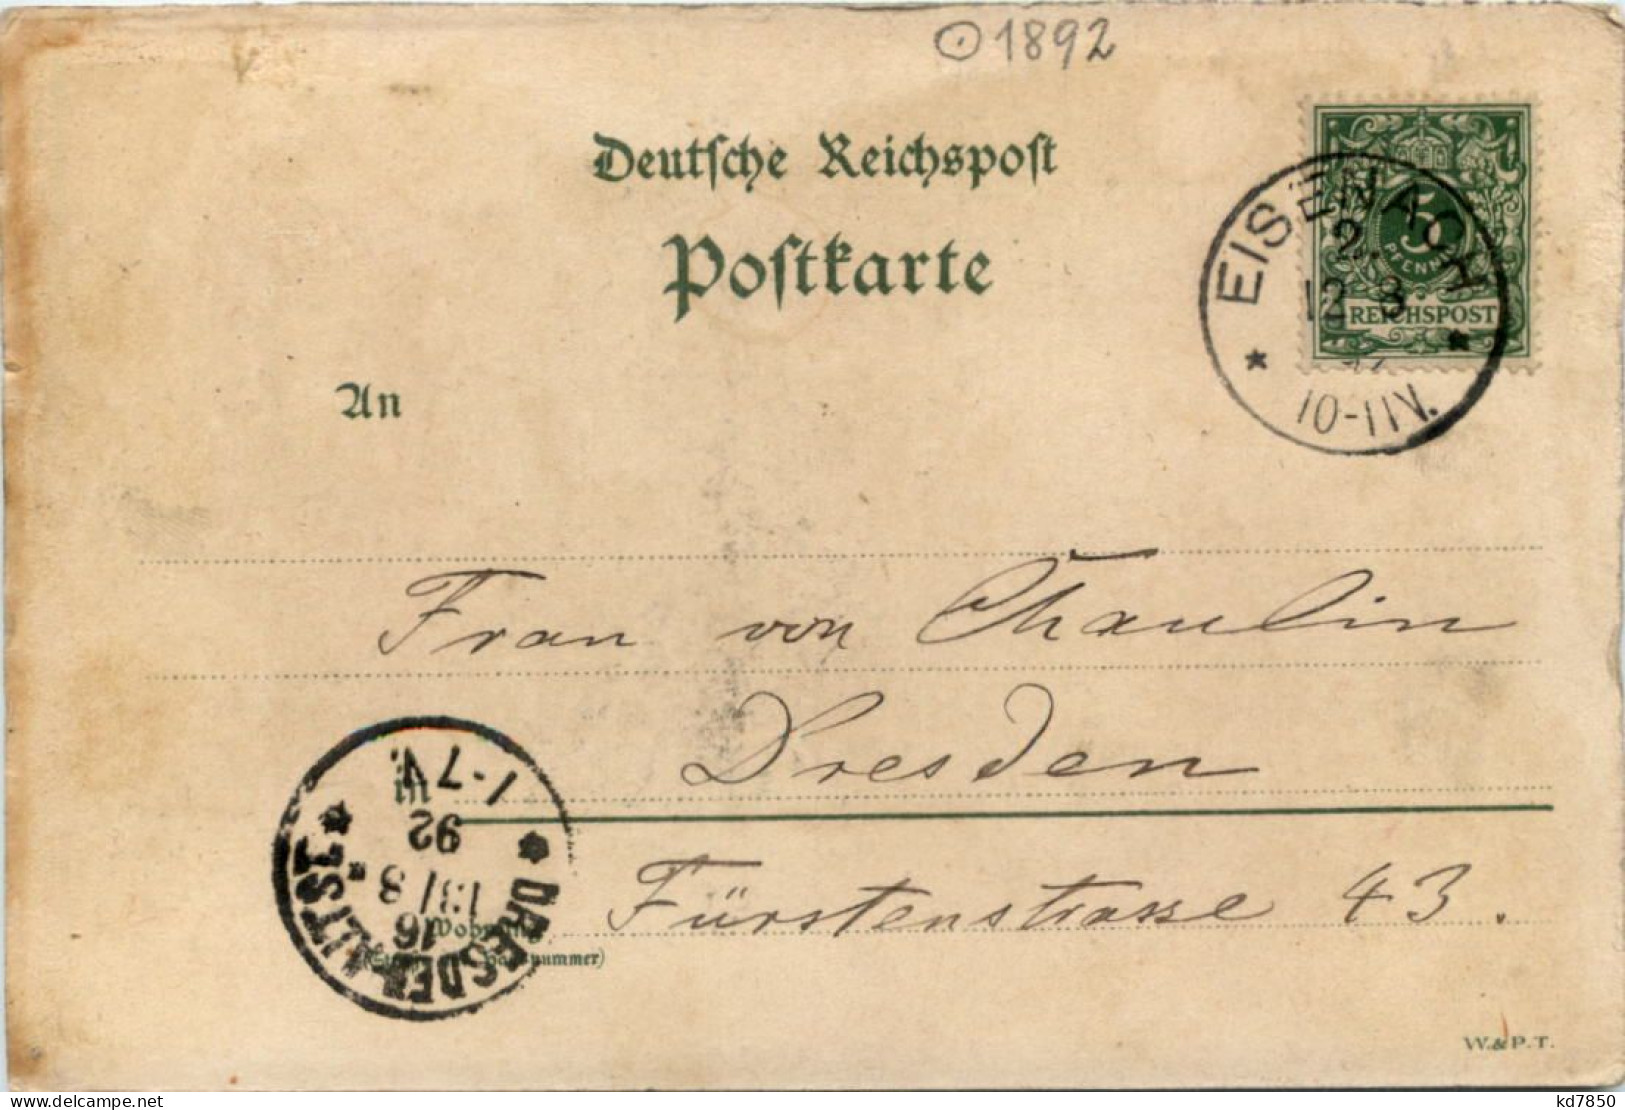 1892
Deutsche Reichspost
Postkarte
5
PFENNIG
REICHSPOST
EISENACH
2.
12 8
10-11V.
An
Frau von Chaulin
Dresden
Fürstenstrasse 43.
Wohnung
(Straße und Hausnummer)
DRESDEN-ALTST. 1.
16
13/8
92
1-7V.
W.&P.T.
kd7850